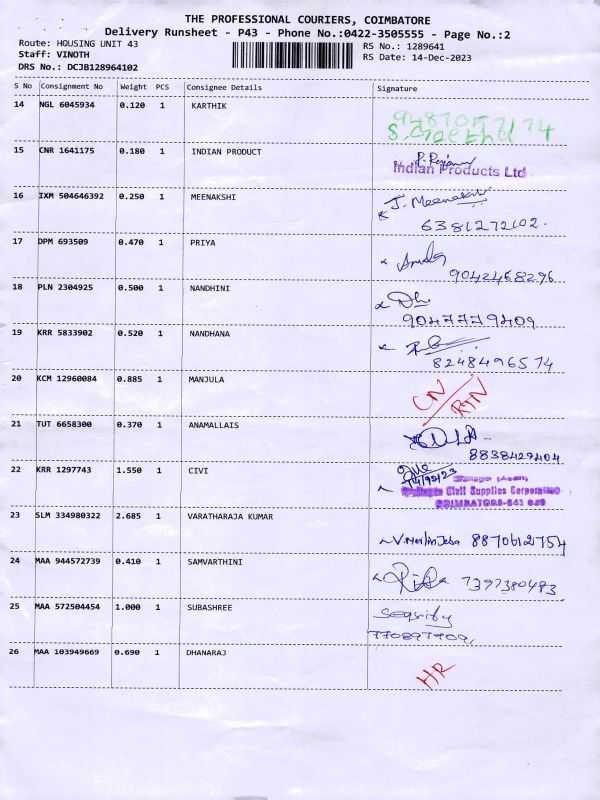 THE PROFESSIONAL COURIERS, COIMBATORE
Delivery Runsheet - P43 - Phone No.:0422-3505555 - Page No.:2
Route: HOUSING UNIT 43
RS No.: 1289641
Staff: VINOTH
RS Date: 14-Dec-2023
DRS No.: DCJB128964102
S No Consignment No Weight PCS Consignee Details Signature
14 NGL 6045934 0.120 1 KARTHIK
S. Geetha
15 CNR 1641175 0.180 1 INDIAN PRODUCT
Indian Products Ltd
16 IXM 504646392 0.250 1 MEENAKSHI J. Meenakshi
6381272102.
17 DPM 693509 0.470 1 PRIYA
9042468296
18 PLN 2304925 0.500 1 NANDHINI Dh.
9047779409
19 KRR 5833902 0.520 1 NANDHANA
8248496574
20 KCM 12960084 0.885 1 MANJULA CN/RTN
21 TUT 6658300 0.370 1 ANAMALLAIS
8838429404
22 KRR 1297743 1.550 1 CIVI
Civil Supplies Corporation
23 SLM 334980322 2.685 1 VARATHARAJA KUMAR
V.Merlin Jeba 8870612754
24 MAA 944572739 0.410 1 SAMVARTHINI
7397380483
25 MAA 572504454 1.000 1 SUBASHREE
26 MAA 103949669 0.690 1 DHANARAJ
HR